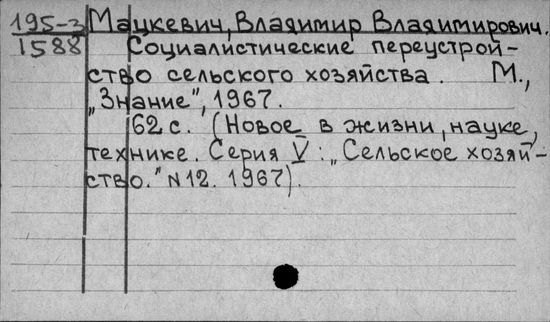 195-3 Мацкевич, Владимир Владимирович.
1588 Социалистические переустрой-
ство сельского хозяйства. М.,
„Знание", 1967.
62 с. (Новое в жизни, науке,
технике. Серия V : „Сельское хозяй-
ство." N12. 1967).